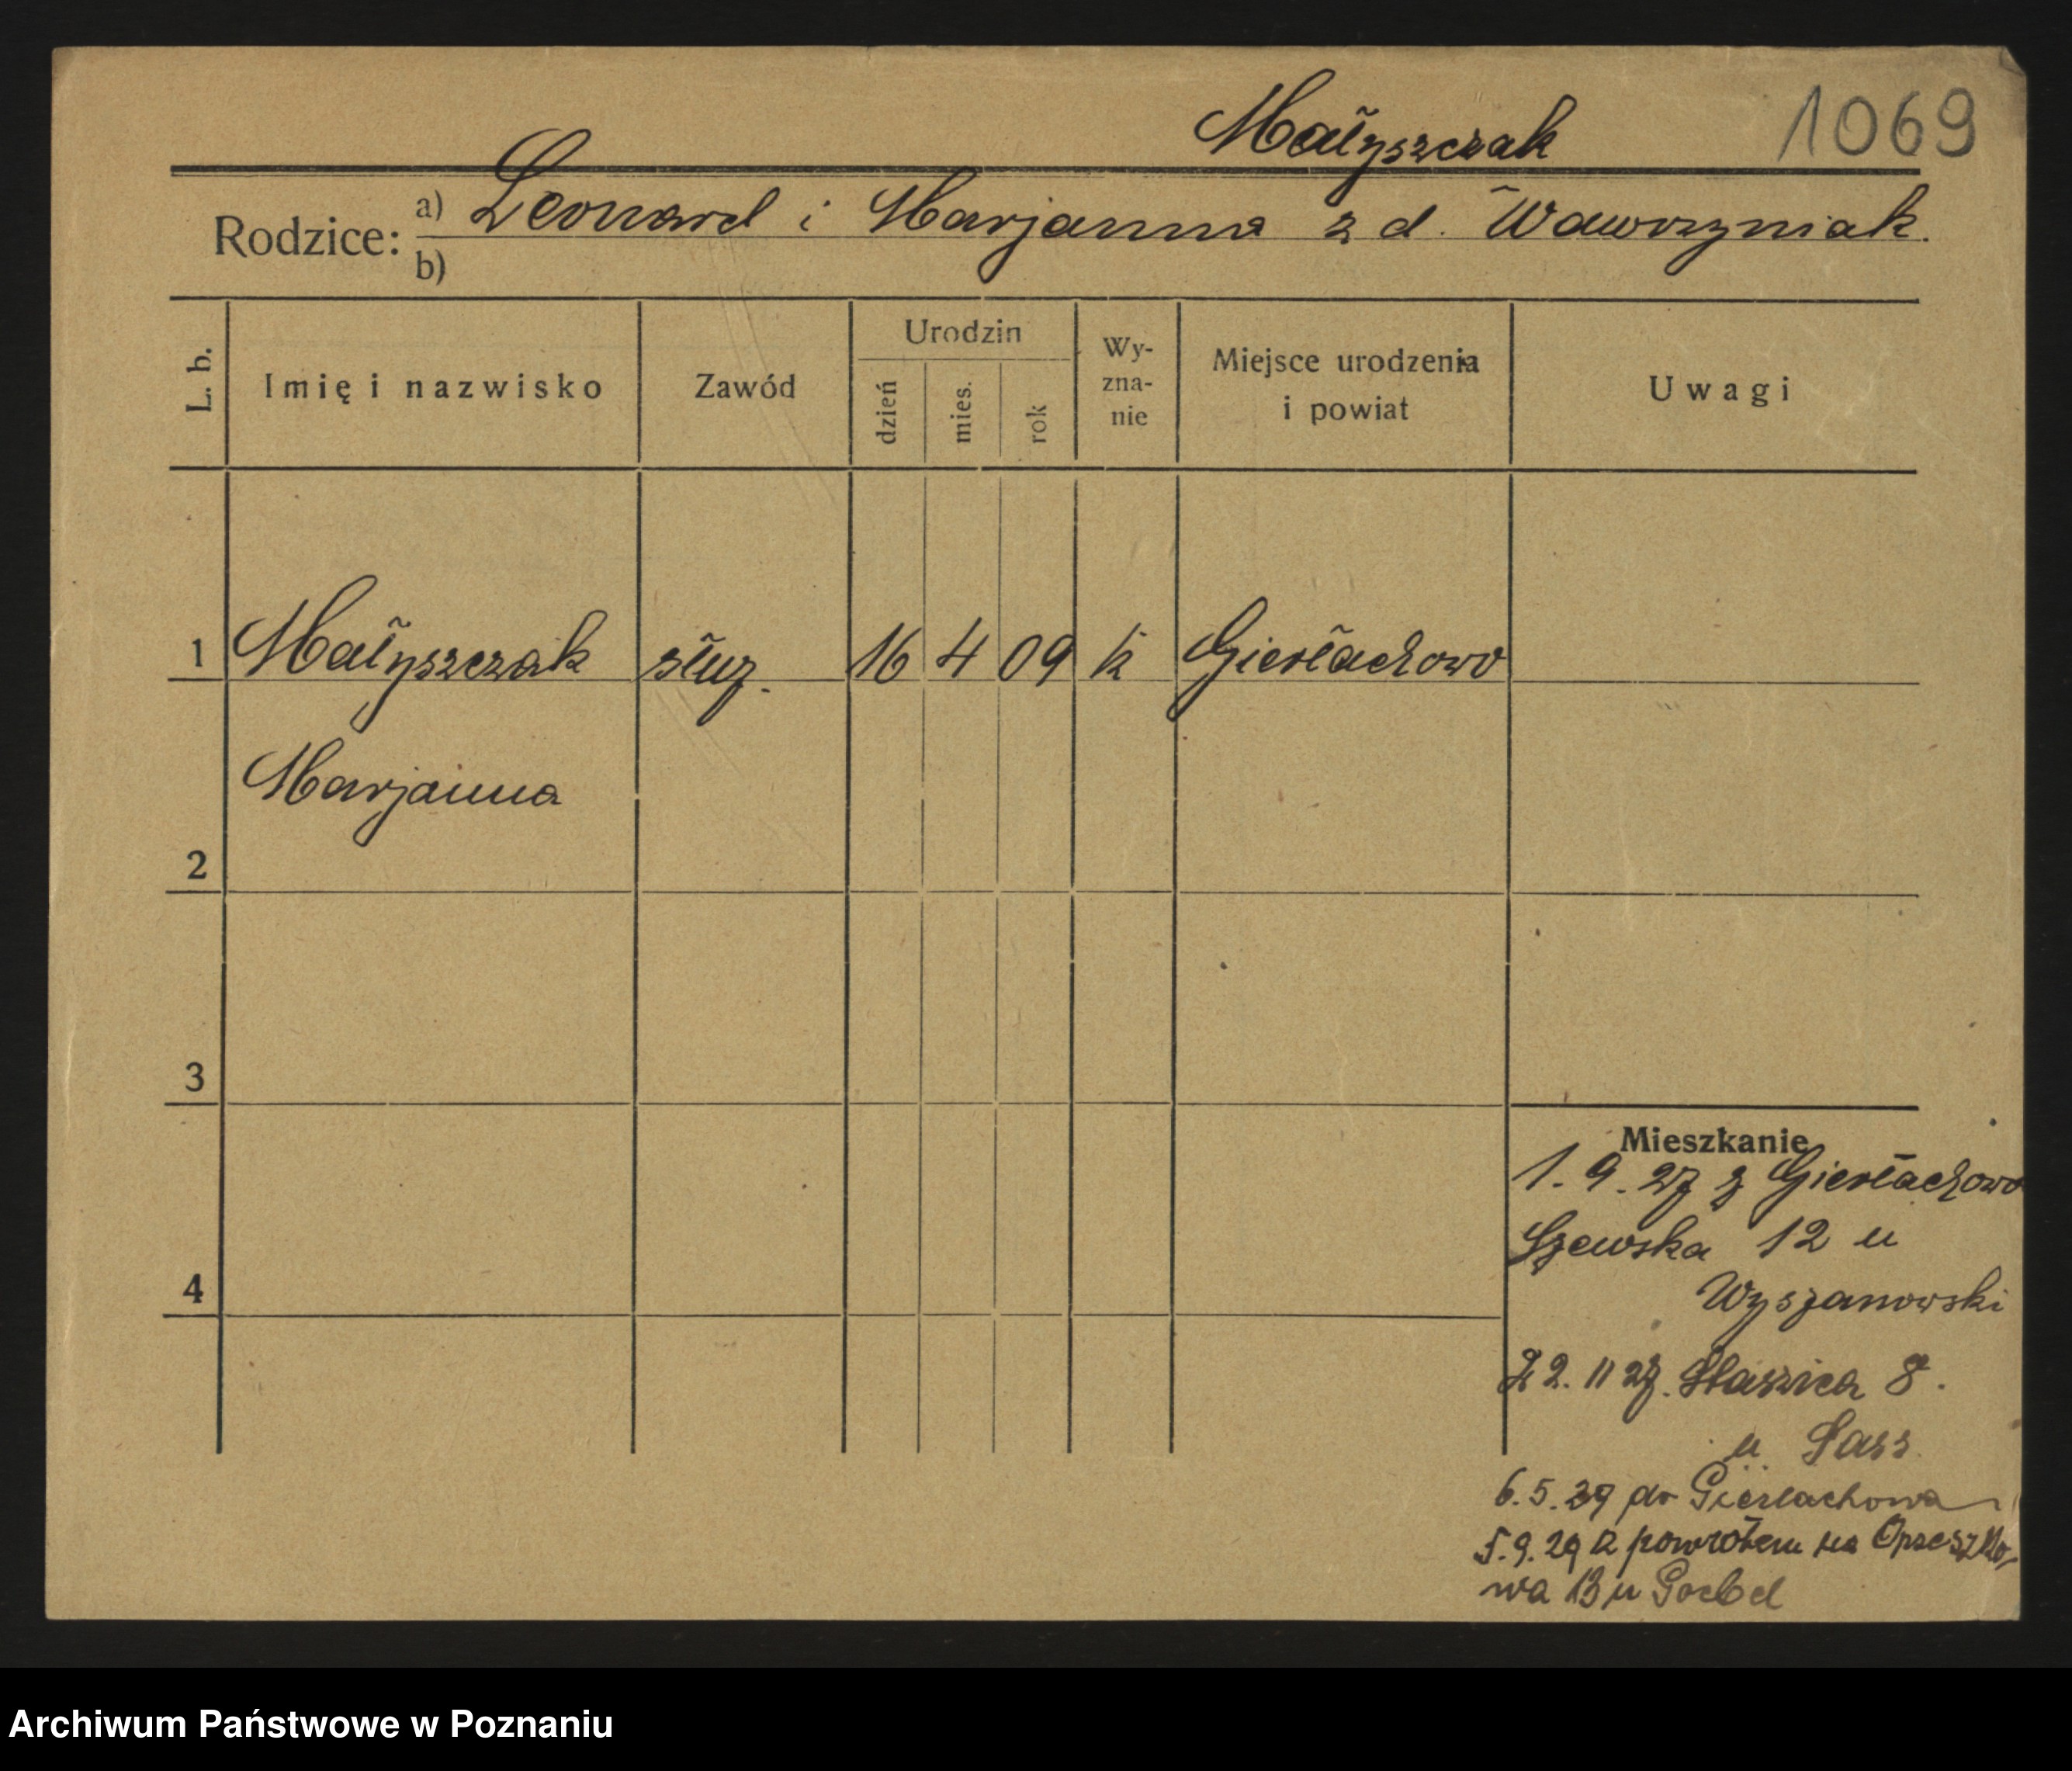 Małyszczak 1069
Rodzice: a) Leonard i Marjanna z d. Wawrzyniak.
b)
L. b. Imię i nazwisko Zawód Urodzin dzień mies. rok Wyznanie Miejsce urodzenia i powiat Uwagi
1 Małyszczak służ. 16 4 09 k Gierłachowo
Marjanna
2
3
Mieszkanie
1. 9. 27 z Gierłachowo
Szewska 12 u
4
Wyszanowski
2. 11 27. Staszica 8.
u Sass
6. 5. 29 do Gierlachowa
5. 9. 29 z powrotem na
wa 13 u Goebel
Archiwum Państwowe w Poznaniu